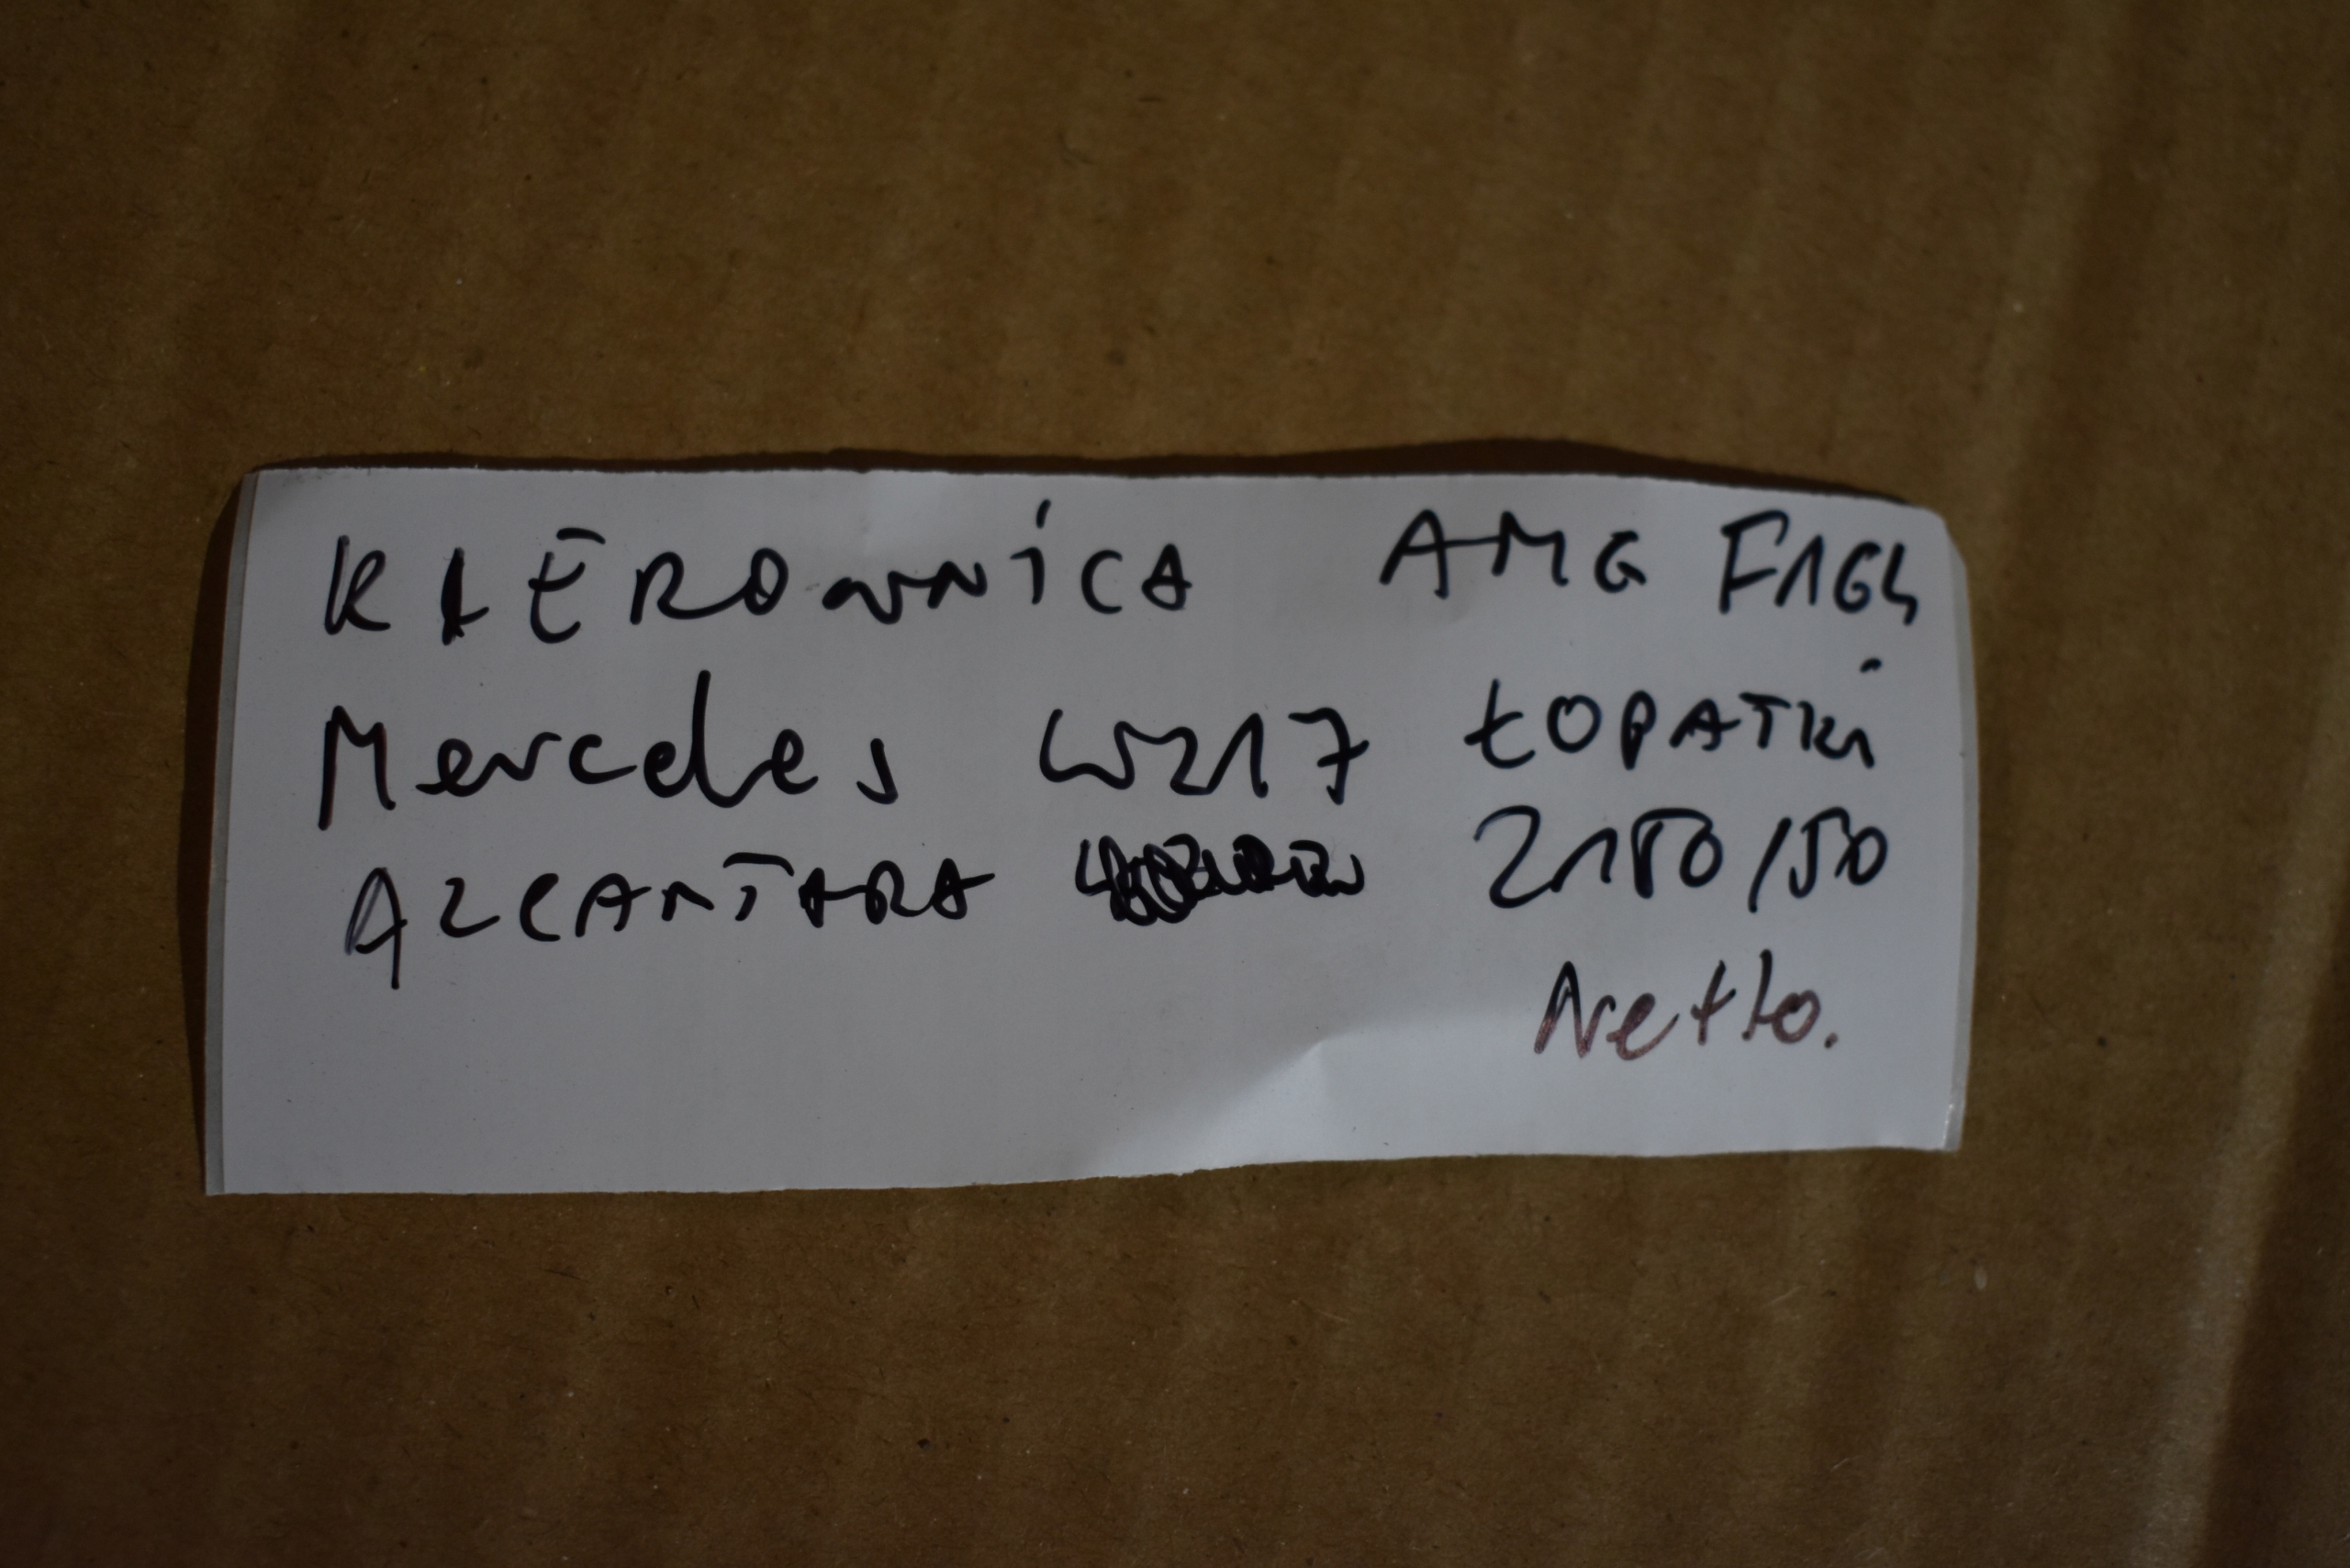 KIEROWNICA AMG F1GS
Mercedes W217 ŁOPATKI
ALCANTARA 2150/50
Netto.